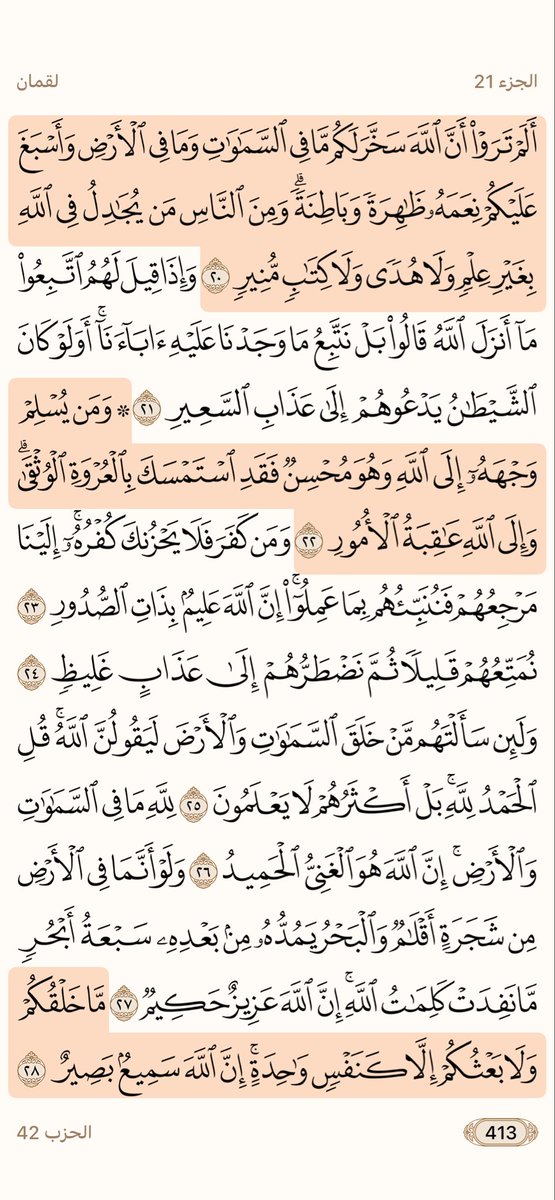 الجزء 21 لقمان
أَلَمْ تَرَوْا۟ أَنَّ ٱللَّهَ سَخَّرَ لَكُم مَّا فِى ٱلسَّمَٰوَٰتِ وَمَا فِى ٱلْأَرْضِ وَأَسْبَغَ
عَلَيْكُمْ نِعَمَهُۥ ظَٰهِرَةً وَبَاطِنَةً ۗ وَمِنَ ٱلنَّاسِ مَن يُجَٰدِلُ فِى ٱللَّهِ
بِغَيْرِ عِلْمٍ وَلَا هُدًى وَلَا كِتَٰبٍ مُّنِيرٍ ٢٠ وَإِذَا قِيلَ لَهُمُ ٱتَّبِعُوا۟
مَآ أَنزَلَ ٱللَّهُ قَالُوا۟ بَلْ نَتَّبِعُ مَا وَجَدْنَا عَلَيْهِ ءَابَآءَنَآ ۚ أَوَلَوْ كَانَ
ٱلشَّيْطَٰنُ يَدْعُوهُمْ إِلَىٰ عَذَابِ ٱلسَّعِيرِ ٢١ ۞ وَمَن يُسْلِمْ
وَجْهَهُۥٓ إِلَى ٱللَّهِ وَهُوَ مُحْسِنٌ فَقَدِ ٱسْتَمْسَكَ بِٱلْعُرْوَةِ ٱلْوُثْقَىٰ ۗ
وَإِلَى ٱللَّهِ عَٰقِبَةُ ٱلْأُمُورِ ٢٢ وَمَن كَفَرَ فَلَا يَحْزُنكَ كُفْرُهُۥٓ ۚ إِلَيْنَا
مَرْجِعُهُمْ فَنُنَبِّئُهُم بِمَا عَمِلُوٓا۟ ۚ إِنَّ ٱللَّهَ عَلِيمٌۢ بِذَاتِ ٱلصُّدُورِ ٢٣
نُمَتِّعُهُمْ قَلِيلًا ثُمَّ نَضْطَرُّهُمْ إِلَىٰ عَذَابٍ غَلِيظٍ ٢٤
وَلَئِن سَأَلْتَهُم مَّنْ خَلَقَ ٱلسَّمَٰوَٰتِ وَٱلْأَرْضَ لَيَقُولُنَّ ٱللَّهُ ۚ قُلِ
ٱلْحَمْدُ لِلَّهِ ۚ بَلْ أَكْثَرُهُمْ لَا يَعْلَمُونَ ٢٥ لِلَّهِ مَا فِى ٱلسَّمَٰوَٰتِ
وَٱلْأَرْضِ ۚ إِنَّ ٱللَّهَ هُوَ ٱلْغَنِىُّ ٱلْحَمِيدُ ٢٦ وَلَوْ أَنَّمَا فِى ٱلْأَرْضِ
مِن شَجَرَةٍ أَقْلَٰمٌ وَٱلْبَحْرُ يَمُدُّهُۥ مِنۢ بَعْدِهِۦ سَبْعَةُ أَبْحُرٍ
مَّا نَفِدَتْ كَلِمَٰتُ ٱللَّهِ ۗ إِنَّ ٱللَّهَ عَزِيزٌ حَكِيمٌ ٢٧ مَّا خَلْقُكُمْ
وَلَا بَعْثُكُمْ إِلَّا كَنَفْسٍ وَٰحِدَةٍ ۗ إِنَّ ٱللَّهَ سَمِيعٌۢ بَصِيرٌ ٢٨
413 الحزب 42